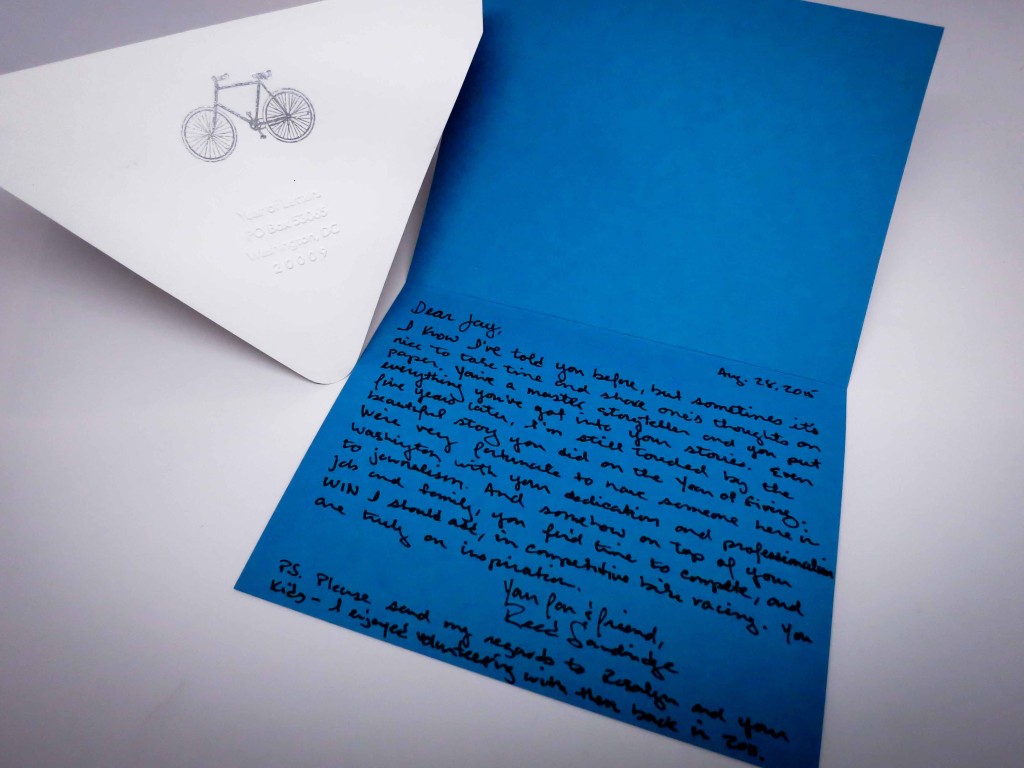 Year of Letters
PO Box 53065
Washington, DC
20009
Aug. 28, 2015
Dear Jay,
I know I've told you before, but sometimes it's
nice to take time and share one's thoughts on
paper. You're a master storyteller and you put
everything you've got into your stories. Even
five years later, I'm still touched by the
beautiful story you did on the Year of Giving.
We're very fortunate to have someone here in
Washington with your dedication and professionalism
to journalism. And somehow on top of your
job and family, you find time to compete, and
WIN I should add, in competitive bike racing. You
are truly an inspiration.
Your fan & friend,
Reed Sandridge
PS. Please send my regards to and your
kids - I enjoyed volunteering with them back in 2011.